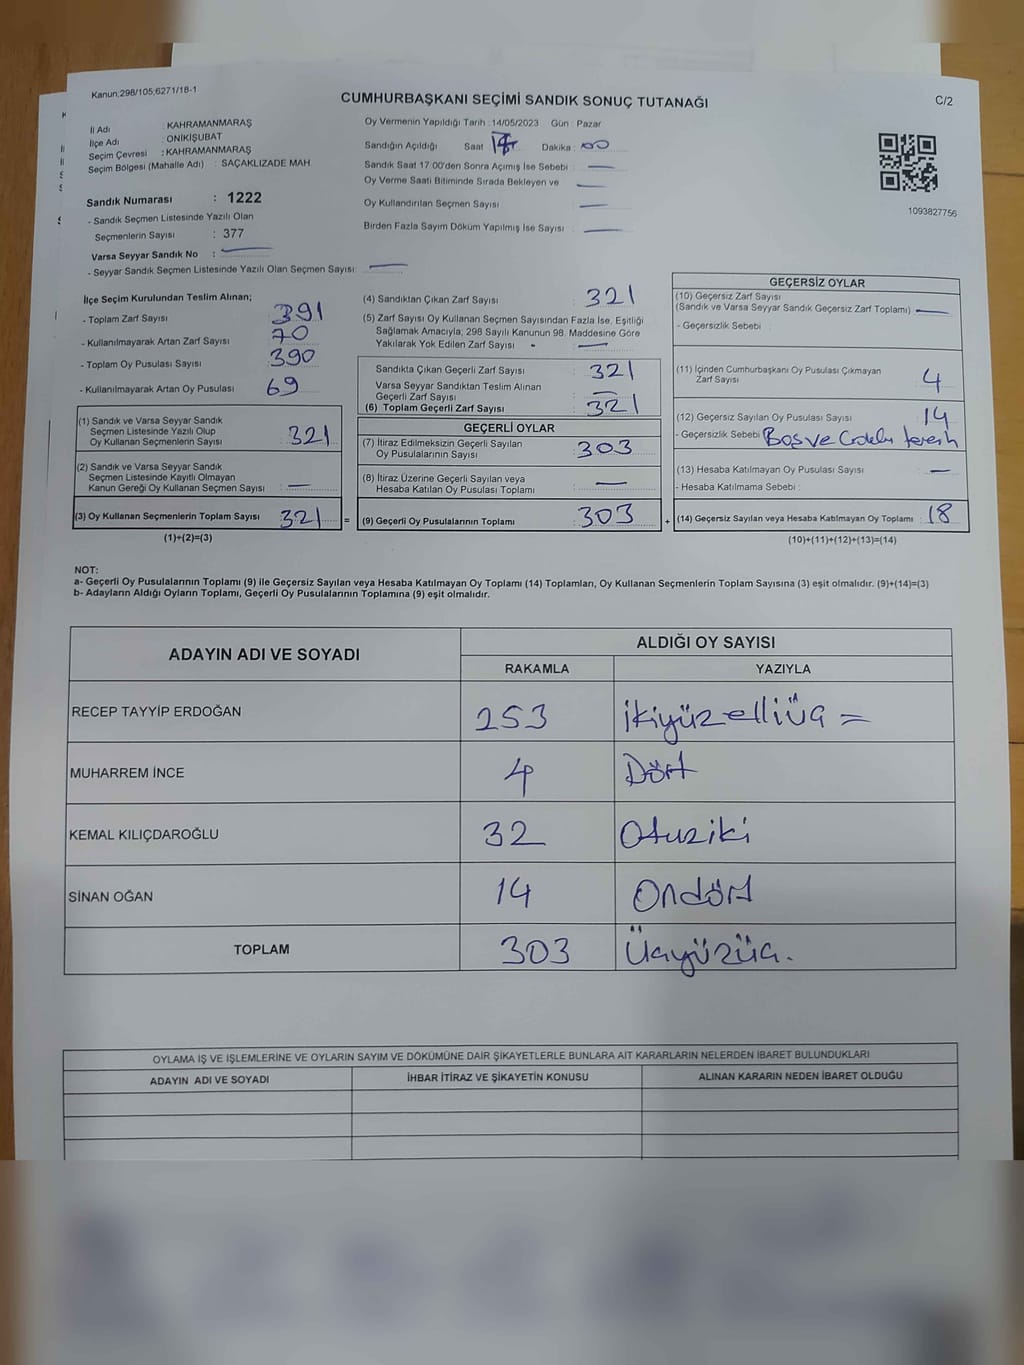 Kanun;298/105;6271/18-1
CUMHURBAŞKANI SEÇİMİ SANDIK SONUÇ TUTANAĞI
C/2
İl Adı : KAHRAMANMARAŞ
İlçe Adı : ONİKİŞUBAT
Seçim Çevresi : KAHRAMANMARAŞ
Seçim Bölgesi (Mahalle Adı) : SAÇAKLIZADE MAH.
Sandık Numarası : 1222
- Sandık Seçmen Listesinde Yazılı Olan
Seçmenlerin Sayısı : 377
Varsa Seyyar Sandık No : —
- Seyyar Sandık Seçmen Listesinde Yazılı Olan Seçmen Sayısı: —
Oy Vermenin Yapıldığı Tarih : 14/05/2023 Gün : Pazar
Sandığın Açıldığı Saat Dakika : 00
Sandık Saat 17:00'den Sonra Açımış İse Sebebi : —
Oy Verme Saati Bitiminde Sırada Bekleyen ve —
Oy Kullandırılan Seçmen Sayısı : —
Birden Fazla Sayım Döküm Yapılmış İse Sayısı : —
1093827756
İlçe Seçim Kurulundan Teslim Alınan;
- Toplam Zarf Sayısı : 391
- Kullanılmayarak Artan Zarf Sayısı : 70
- Toplam Oy Pusulası Sayısı : 390
- Kullanılmayarak Artan Oy Pusulası : 69
(1) Sandık ve Varsa Seyyar Sandık
Seçmen Listesinde Yazılı Olup
Oy Kullanan Seçmenlerin Sayısı : 321
(2) Sandık ve Varsa Seyyar Sandık
Seçmen Listesinde Kayıtlı Olmayan
Kanun Gereği Oy Kullanan Seçmen Sayısı : —
(3) Oy Kullanan Seçmenlerin Toplam Sayısı : 321 =
(1)+(2)=(3)
(4) Sandıktan Çıkan Zarf Sayısı : 321
(5) Zarf Sayısı Oy Kullanan Seçmen Sayısından Fazla İse, Eşitliği
Sağlamak Amacıyla; 298 Sayılı Kanunun 98. Maddesine Göre
Yakılarak Yok Edilen Zarf Sayısı : —
Sandıkta Çıkan Geçerli Zarf Sayısı : 321
Varsa Seyyar Sandıktan Teslim Alınan
Geçerli Zarf Sayısı : —
(6) Toplam Geçerli Zarf Sayısı : 321
GEÇERLİ OYLAR
(7) İtiraz Edilmeksizin Geçerli Sayılan
Oy Pusulalarının Sayısı : 303
(8) İtiraz Üzerine Geçerli Sayılan veya
Hesaba Katılan Oy Pusulası Toplamı : —
(9) Geçerli Oy Pusulalarının Toplamı : 303 +
GEÇERSİZ OYLAR
(10) Geçersiz Zarf Sayısı
(Sandık ve Varsa Seyyar Sandık Geçersiz Zarf Toplamı) : —
- Geçersizlik Sebebi :
(11) İçinden Cumhurbaşkanı Oy Pusulası Çıkmayan
Zarf Sayısı : 4
(12) Geçersiz Sayılan Oy Pusulası Sayısı : 14
- Geçersizlik Sebebi : Boş ve
(13) Hesaba Katılmayan Oy Pusulası Sayısı : —
- Hesaba Katılmama Sebebi :
(14) Geçersiz Sayılan veya Hesaba Katılmayan Oy Toplamı : 18
(10)+(11)+(12)+(13)=(14)
NOT:
a- Geçerli Oy Pusulalarının Toplamı (9) ile Geçersiz Sayılan veya Hesaba Katılmayan Oy Toplamı (14) Toplamları, Oy Kullanan Seçmenlerin Toplam Sayısına (3) eşit olmalıdır. (9)+(14)=(3)
b- Adayların Aldığı Oyların Toplamı, Geçerli Oy Pusulalarının Toplamına (9) eşit olmalıdır.
ADAYIN ADI VE SOYADI
ALDIĞI OY SAYISI
RAKAMLA YAZIYLA
RECEP TAYYİP ERDOĞAN 253 İkiyüzelliüç =
MUHARREM İNCE 4 Dört
KEMAL KILIÇDAROĞLU 32 Otuziki
SİNAN OĞAN 14 Ondört
TOPLAM 303 Üçyüzüç.
OYLAMA İŞ VE İŞLEMLERİNE VE OYLARIN SAYIM VE DÖKÜMÜNE DAİR ŞİKAYETLERLE BUNLARA AİT KARARLARIN NELERDEN İBARET BULUNDUKLARI
ADAYIN ADI VE SOYADI İHBAR İTİRAZ VE ŞİKAYETİN KONUSU ALINAN KARARIN NEDEN İBARET OLDUĞU